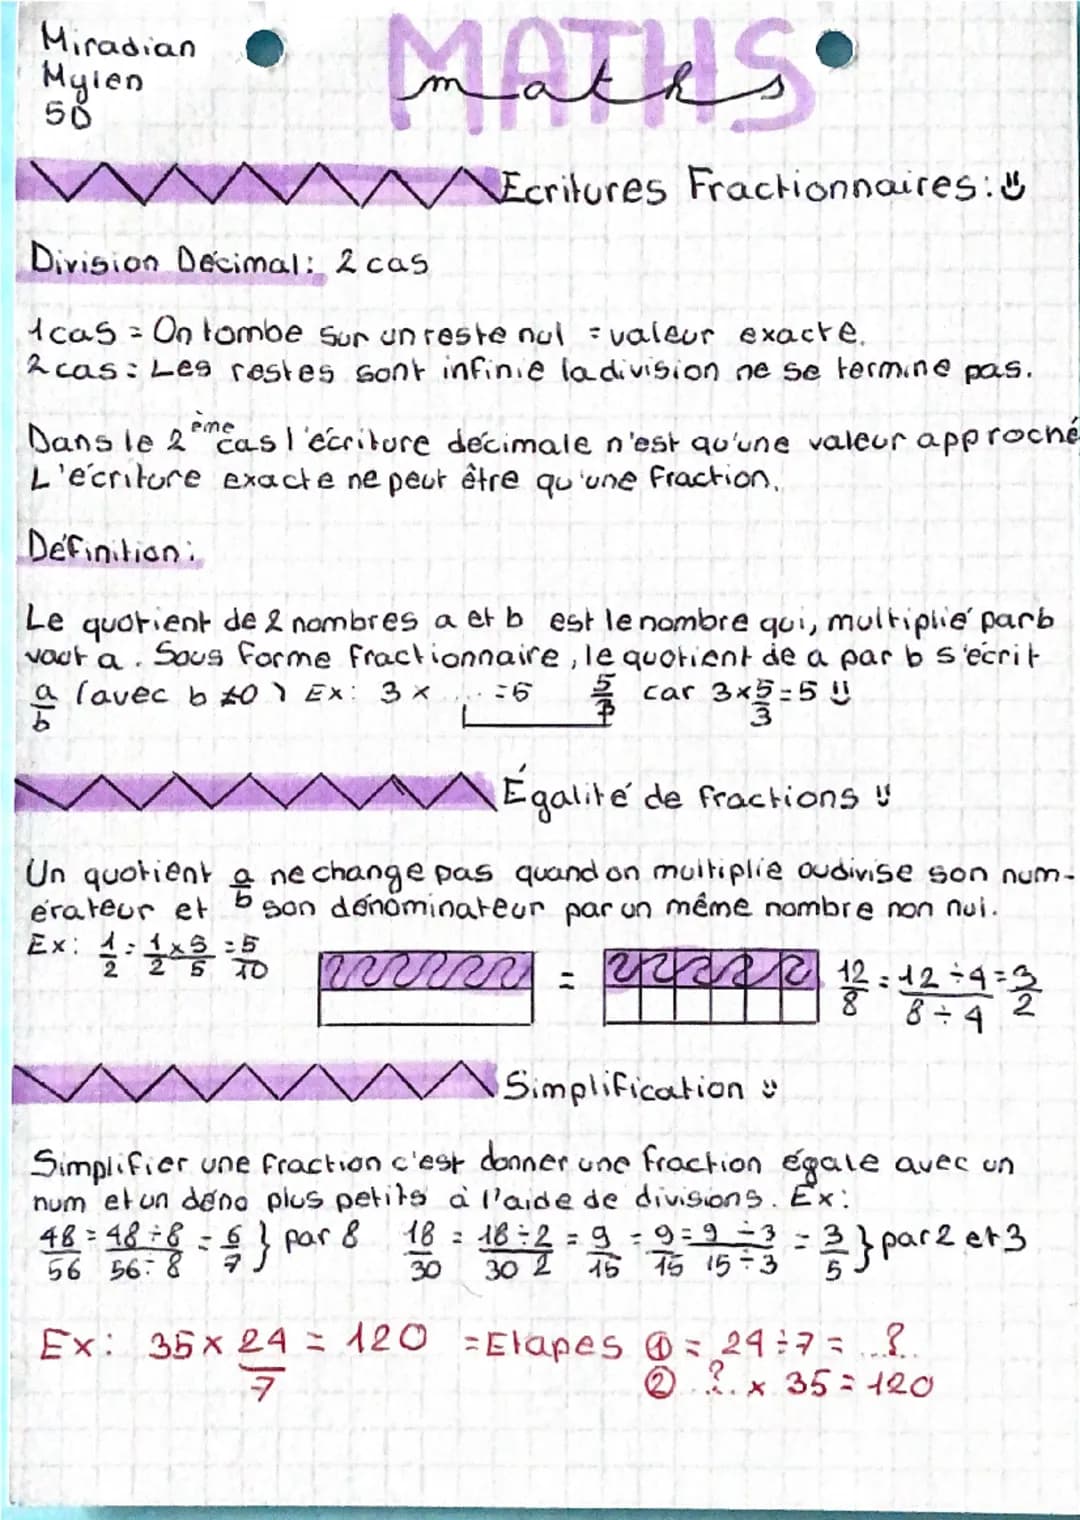 Miradian
Mylen
5D
MATHS
maths
Ecritures Fractionnaires:
Division Décimal: 2 cas
1cas = On tombe sur un reste nul = valeur exacte.
2cas: Les restes sont infinie la division ne se termine pas.
Dans le 2ème cas l'écriture décimale n'est qu'une valeur approché
L'écriture exacte ne peut être qu'une fraction.
Définition:
Le quotient de 2 nombres a et b est le nombre qui, multiplié par b
vaut a. Sous forme fractionnaire, le quotient de a par b s'écrit
a/b (avec b ≠0) Ex: 3 × .... = 5 5/3 car 3×5/3=5
Égalité de fractions
Un quotient a/b ne change pas quand on multiplie ou divise son num-
érateur et son dénominateur par un même nombre non nul.
Ex: 1/2 = 1×5/2 5 = 5/10 = 12/8 = 12÷4/8÷4 = 3/2
Simplification
Simplifier une fraction c'est donner une fraction égale avec un
num et un déno plus petits à l'aide de divisions. Ex:
48/56 = 48÷8/56÷8 = 6/7 } par 8 18/30 = 18÷2/30 2 = 9/15 = 9/15 = 9÷3/15÷3 = 3/5 } par 2 et 3
Ex: 35 × 24/7 = 120 = Etapes ① = 24÷7 = ...?..
② ..?.. × 35 = 120